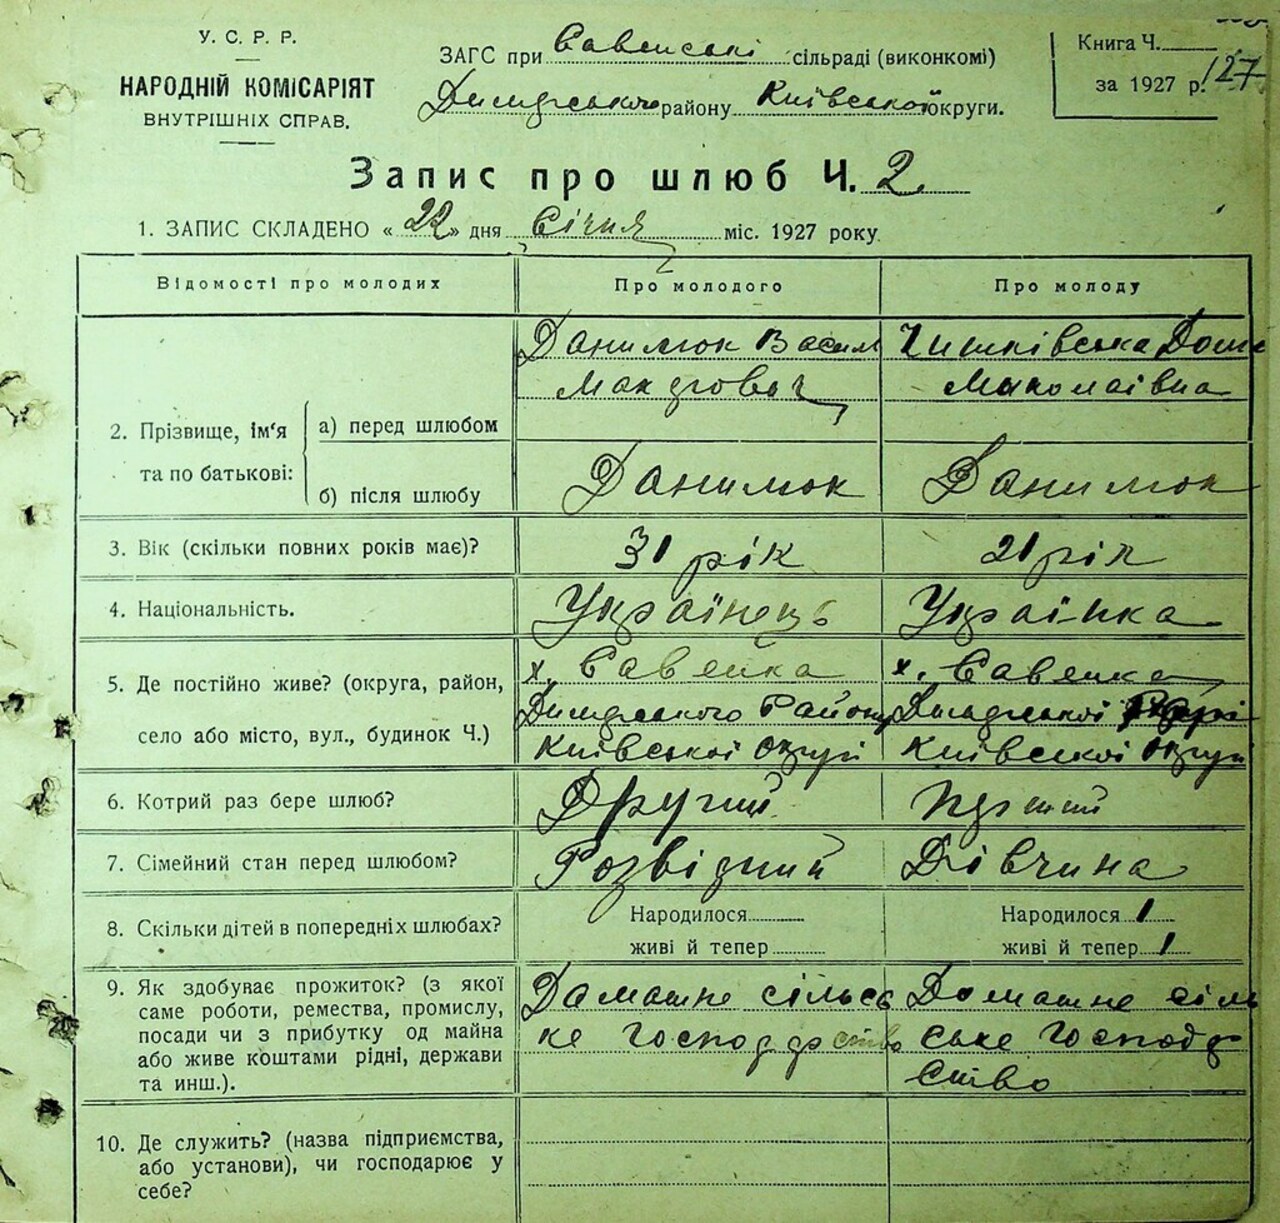 У. С. Р. Р.
НАРОДНІЙ КОМІСАРІЯТ
ВНУТРІШНІХ СПРАВ.
ЗАГС при Савенські сільраді (виконкомі)
Димерського району Київської округи.
Книга Ч.
за 1927 р. 127
Запис про шлюб Ч. 2.
1. ЗАПИС СКЛАДЕНО « 22 » дня Січня міс. 1927 року.
Відомості про молодих Про молодого Про молоду
Данилюк Васил Чишківська
Миколаівна
2. Прізвище, ім'я та по батькові:
а) перед шлюбом
б) після шлюбу Данилюк Данилюк
3. Вік (скільки повних років має)? 31 рік 21 рік
4. Національність. Українець Українка
5. Де постійно живе? (округа, район, село або місто, вул., будинок Ч.)
х. Савенка х. Савенка
Димерського Району Димерської
Київської округи Київської округи
6. Котрий раз бере шлюб? Другий Перший
7. Сімейний стан перед шлюбом? Розвідний Дівчина
8. Скільки дітей в попередніх шлюбах? Народилося Народилося 1
живі й тепер живі й тепер 1
9. Як здобуває прожиток? (з якої
саме роботи, ремества, промислу,
посади чи з прибутку од майна
або живе коштами рідні, держави
та инш.).
Дамашне сільсь
ке господарство
Домашне сіль
ське господар
ство
10. Де служить? (назва підприємства,
або установи), чи господарює у
себе?